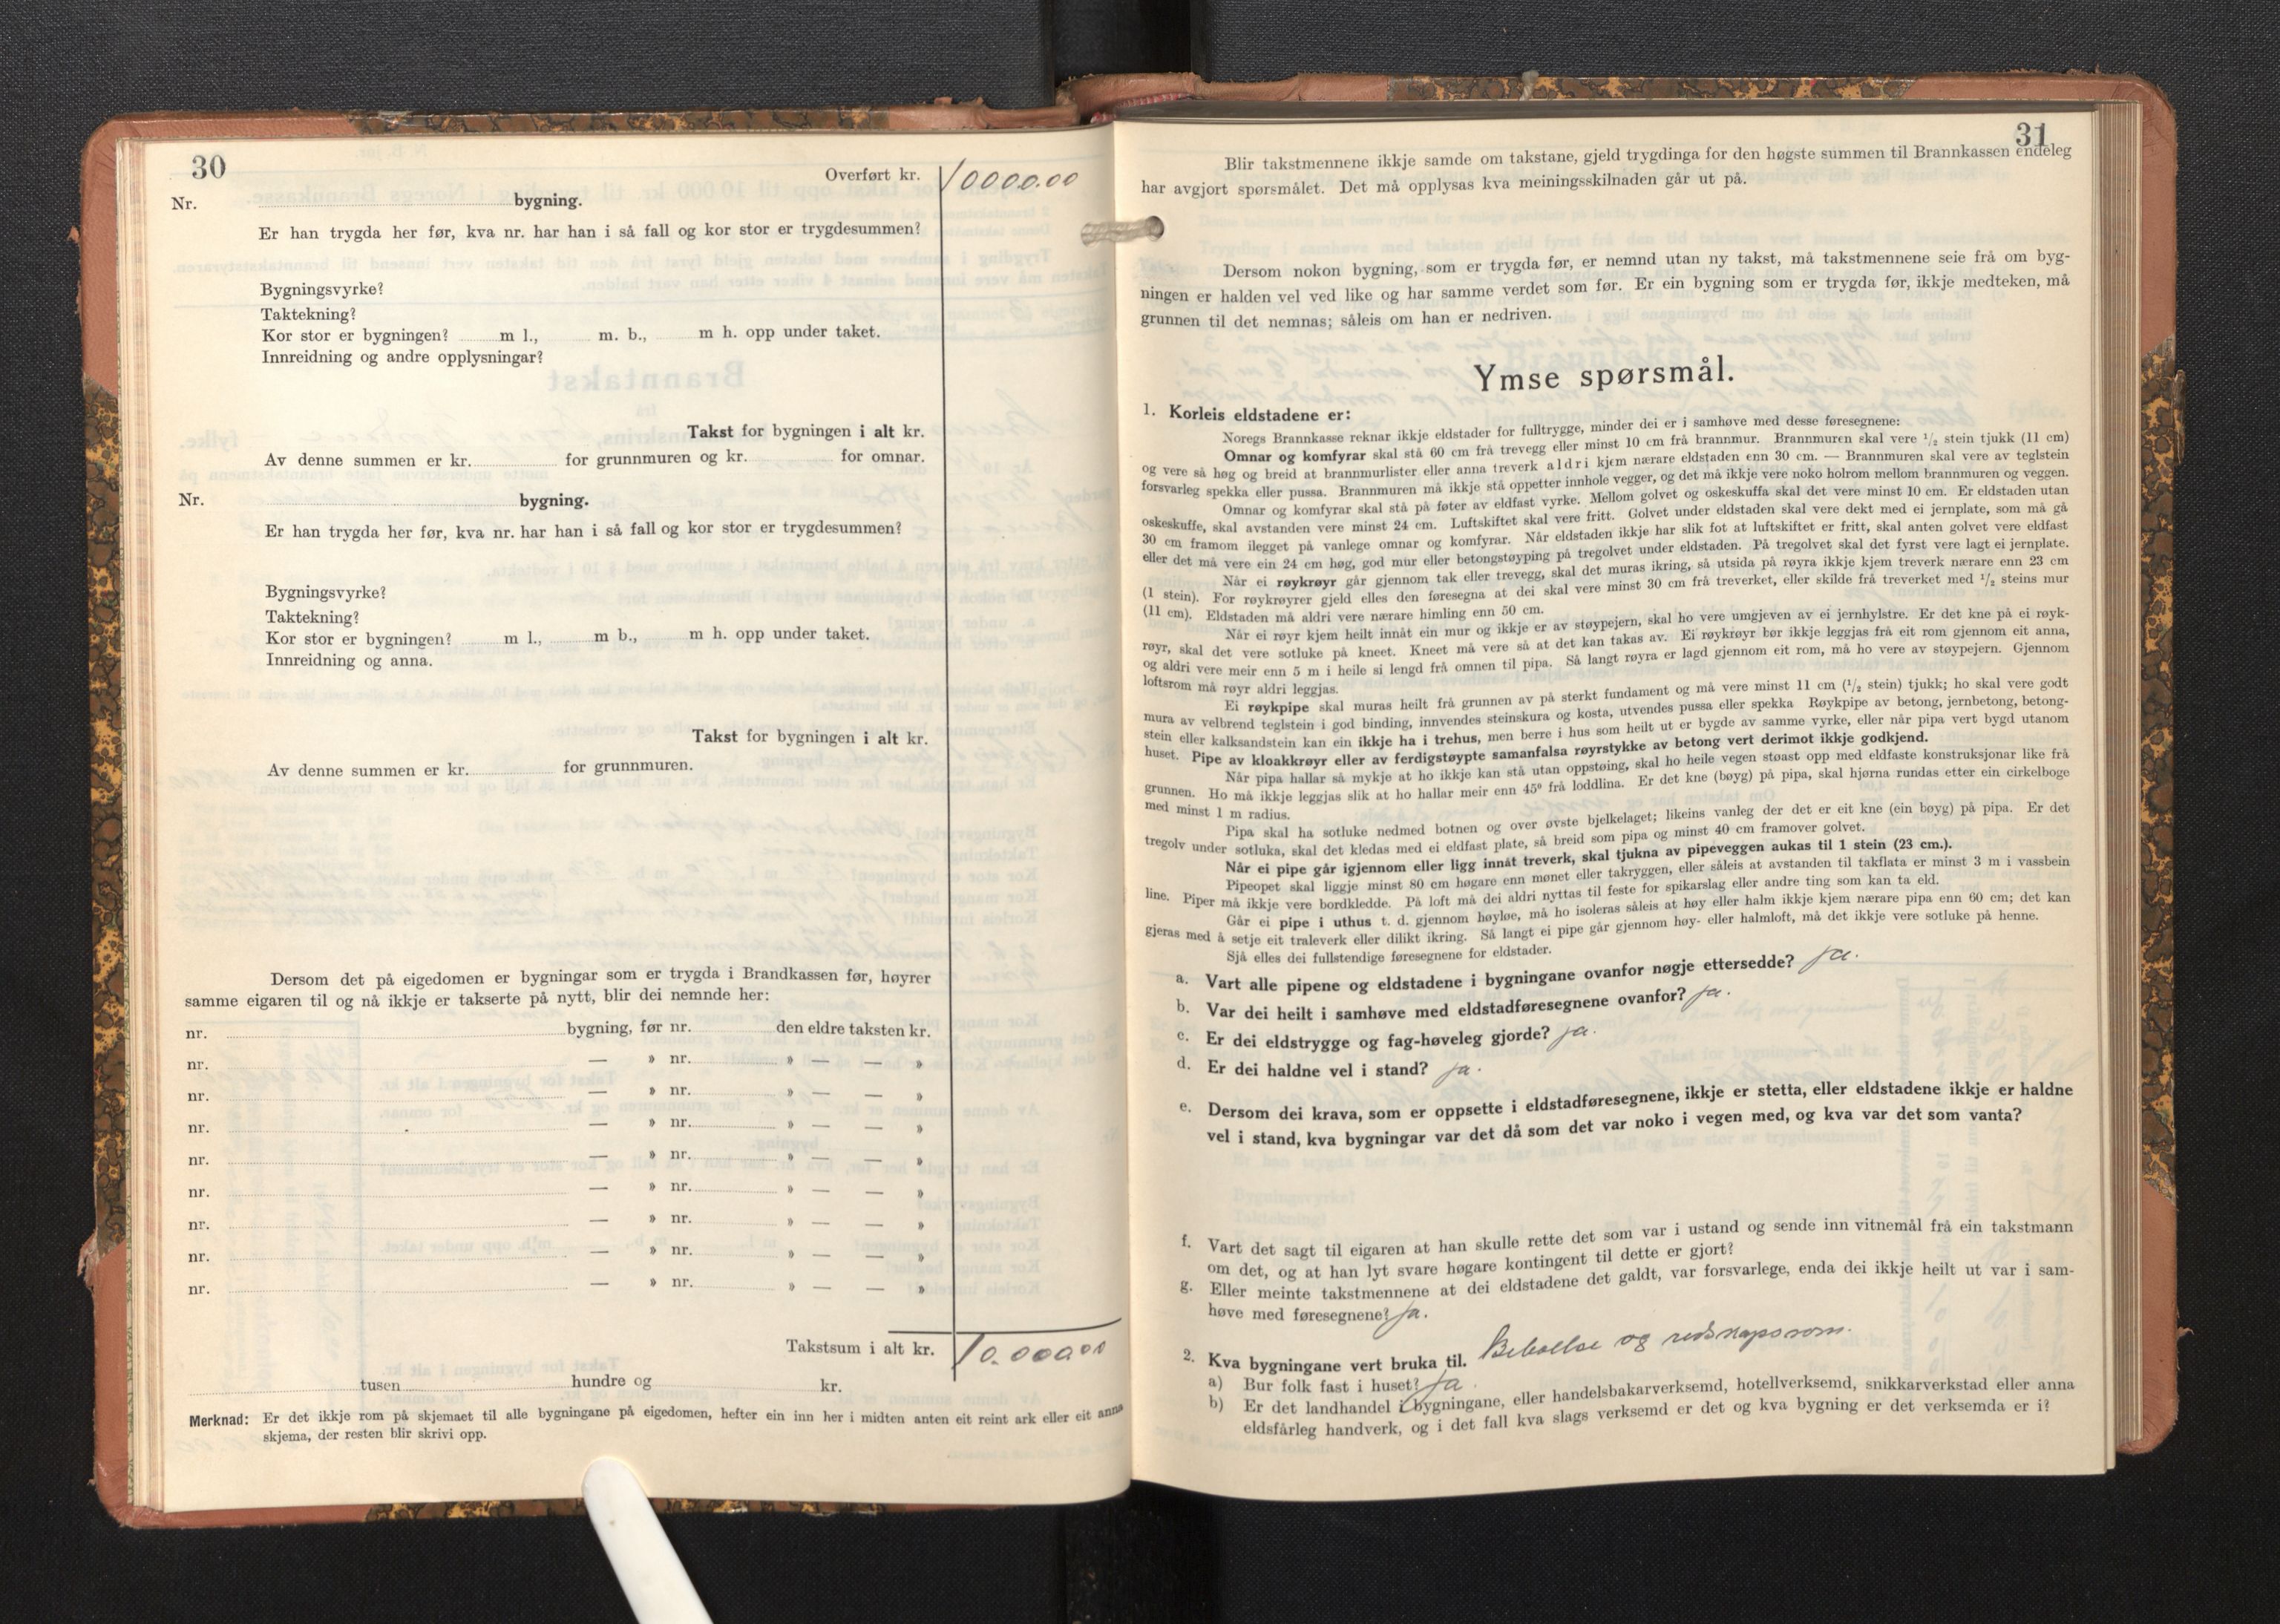 30
Overført kr. 10000.00
Nr. bygning.
Er han trygda her før, kva nr. har han i så fall og kor stor er trygdesummen?
Bygningsvyrke?
Taktekning?
Kor stor er bygningen? m l., m. b., m h. opp under taket.
Innreidning og andre opplysningar?
Takst for bygningen i alt kr.
Av denne summen er kr. for grunnmuren og kr. for omnar.
Nr. bygning.
Er han trygda her før, kva nr. har han i så fall og kor stor er trygdesummen?
Bygningsvyrke?
Taktekning?
Kor stor er bygningen? m l., m b., m h. opp under taket.
Innreidning og anna.
Takst for bygningen i alt kr.
Av denne summen er kr. for grunnmuren.
Dersom det på eigedomen er bygningar som er trygda i Brandkassen før, høyrer
samme eigaren til og nå ikkje er takserte på nytt, blir dei nemnde her:
nr. bygning, før nr. den eldre taksten kr.
nr. — » nr. » — — »
nr. — » nr. » — — »
nr. — » nr. » — — »
nr. — » nr. » — — »
nr. — » nr. » — — »
nr. — » nr. » — — »
nr. — » nr. » — — »
nr. — » nr. » — — »
Takstsum i alt kr. 10.000.00
tusen hundre og kr.
Merknad: Er det ikkje rom på skjemaet til alle bygningane på eigedomen, hefter ein inn her i midten anten eit reint ark eller eit anna
skjema, der resten blir skrivi opp.
31
Blir takstmennene ikkje samde om takstane, gjeld trygdinga for den høgste summen til Brannkassen endeleg
har avgjort spørsmålet. Det må opplysas kva meiningsskilnaden går ut på.
Dersom nokon bygning, som er trygda før, er nemnd utan ny takst, må takstmennene seie frå om byg-
ningen er halden vel ved like og har samme verdet som før. Er ein bygning som er trygda før, ikkje medteken, må
grunnen til det nemnas; såleis om han er nedriven.
Ymse spørsmål.
1. Korleis eldstadene er:
Noregs Brannkasse reknar ikkje eldstader for fulltrygge, minder dei er i samhøve med desse føresegnene:
Omnar og komfyrar skal stå 60 cm frå trevegg eller minst 10 cm frå brannmur. Brannmuren skal vere 1/2 stein tjukk (11 cm)
og vere så høg og breid at brannmurlister eller anna treverk aldri kjem nærare eldstaden enn 30 cm. — Brannmuren skal vere av teglstein
forsvarleg spekka eller pussa. Brannmuren må ikkje stå oppetter innhole vegger, og det må ikkje vere noko holrom mellom brannmuren og veggen.
Omnar og komfyrar skal stå på føter av eldfast vyrke. Mellom golvet og oskeskuffa skal det vere minst 10 cm. Er eldstaden utan
oskeskuffe, skal avstanden vere minst 24 cm. Luftskiftet skal vere fritt. Golvet under eldstaden skal vere dekt med ei jernplate, som må gå
30 cm framom ilegget på vanlege omnar og komfyrar. Når eldstaden ikkje har slik fot at luftskiftet er fritt, skal anten golvet vere eldfast
eller det må vere ein 24 cm høg, god mur eller betongstøyping på tregolvet under eldstaden. På tregolvet skal det fyrst vere lagt ei jernplate.
Når ei røykrøyr går gjennom tak eller trevegg, skal det muras ikring, så utsida på røyra ikkje kjem treverk nærare enn 23 cm
(1 stein). For røykrøyrer gjeld elles den føresegna at dei skal vere minst 30 cm frå treverket, eller skilde frå treverket med 1/2 steins mur
(11 cm). Eldstaden må aldri vere nærare himling enn 50 cm.
Når ei røyr kjem heilt innåt ein mur og ikkje er av støypejern, skal ho vere umgjeven av ei jernhylstre. Er det kne på ei røyk-
røyr, skal det vere sotluke på kneet. Kneet må vere så at det kan takas av. Ei røykrøyr bør ikkje leggjas frå eit rom gjennom eit anna,
og aldri vere meir enn 5 m i heile si lengd frå omnen til pipa. Så langt røyra er lagd gjennom eit rom, må ho vere av støypejern. Gjennom
loftsrom må røyr aldri leggjas.
Ei røykpipe skal muras heilt frå grunnen av på sterkt fundament og må vere minst 11 cm (1/2 stein) tjukk; ho skal vere godt
mura av velbrend teglstein i god binding, innvendes steinskura og kosta, utvendes pussa eller spekka Røykpipe av betong, jernbetong, betong-
stein eller kalksandstein kan ein ikkje ha i trehus, men berre i hus som heilt ut er bygde av samme vyrke, eller når pipa vert bygd utanom
huset. Pipe av kloakkrøyr eller av ferdigstøypte samanfalsa røyrstykke av betong vert derimot ikkje godkjend.
Når pipa hallar så mykje at ho ikkje kan stå utan oppstøing, skal ho heile vegen støast opp med eldfaste konstruksjonar like frå
grunnen. Ho må ikkje leggjas slik at ho hallar meir enn 45° frå loddlina. Er det kne (bøyg) på pipa, skal hjørna rundas etter ein cirkelboge
med minst 1 m radius.
Pipa skal ha sotluke nedmed botnen og over øvste bjelkelaget; likeins vanleg der det er eit kne (ein bøyg) på pipa. Er det
tregolv under sotluka, skal det kledas med ei eldfast plate, så breid som pipa og minst 40 cm framover golvet.
Når ei pipe går igjennom eller ligg innåt treverk, skal tjukna av pipeveggen aukas til 1 stein (23 cm.).
Pipeopet skal liggje minst 80 cm høgare enn mønet eller takryggen, eller såleis at avstanden til takflata er minst 3 m i vassbein
line. Piper må ikkje vere bordkledde. På loft må dei aldri nyttas til feste for spikarslag eller andre ting som kan ta eld.
Går ei pipe i uthus t. d. gjennom høyløe, må ho isoleras såleis at høy eller halm ikkje kjem nærare pipa enn 60 cm; det kan
gjeras med å setje eit traleverk eller dilikt ikring. Så langt ei pipe går gjennom høy- eller halmloft, må det ikkje vere sotluke på henne.
Sjå elles dei fullstendige føresegnene for eldstader.
a. Vart alle pipene og eldstadene i bygningane ovanfor nøgje ettersedde? ja.
b. Var dei heilt i samhøve med eldstadføresegnene ovanfor? ja.
c. Er dei eldstrygge og fag-høveleg gjorde? ja.
d. Er dei haldne vel i stand? ja.
e. Dersom dei krava, som er oppsette i eldstadføresegnene, ikkje er stetta, eller eldstadene ikkje er haldne
vel i stand, kva bygningar var det då som det var noko i vegen med, og kva var det som vanta?
f. Vart det sagt til eigaren at han skulle rette det som var i ustand og sende inn vitnemål frå ein takstmann
om det, og at han lyt svare høgare kontingent til dette er gjort?
g. Eller meinte takstmennene at dei eldstadene det galdt, var forsvarlege, enda dei ikkje heilt ut var i sam-
høve med føresegnene? Ja.
2. Kva bygningane vert bruka til. Beboelse og redskapsrom.
a) Bur folk fast i huset? Ja
b) Er det landhandel i bygningane, eller handelsbakarverksemd, hotellverksemd, snikkarverkstad eller anna
eldsfårleg handverk, og i det fall kva slags verksemd er det og kva bygning er det verksemda er i?